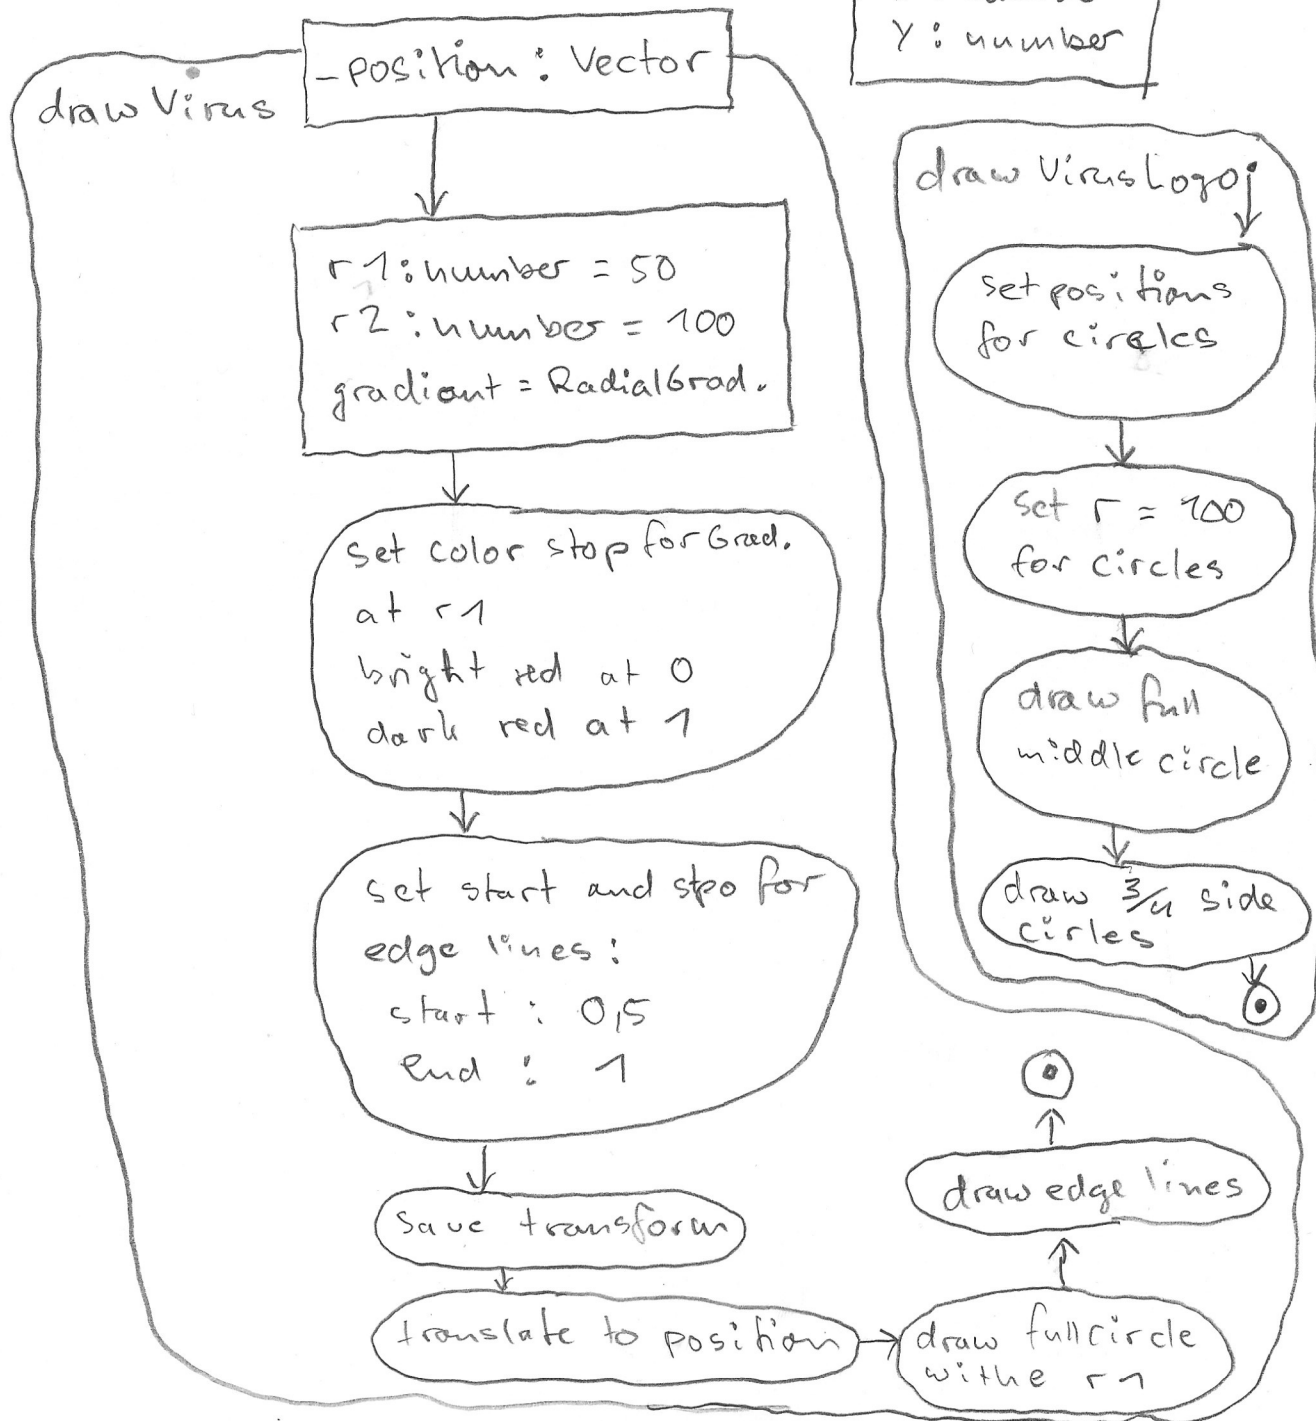 Y : number
_position : Vector
drawVirus
r1 : number = 50
r2 : number = 100
gradient = RadialGrad.
set color stop for Grad.
at r1
bright red at 0
dark red at 1
set start and stpo for
edge lines :
start : 0,5
end : 1
save transform
translate to position
draw full circle
withe r1
draw edge lines
drawVirusLogo
set positions
for circles
set r = 100
for circles
draw full
middle circle
draw 3/4 side
cirles